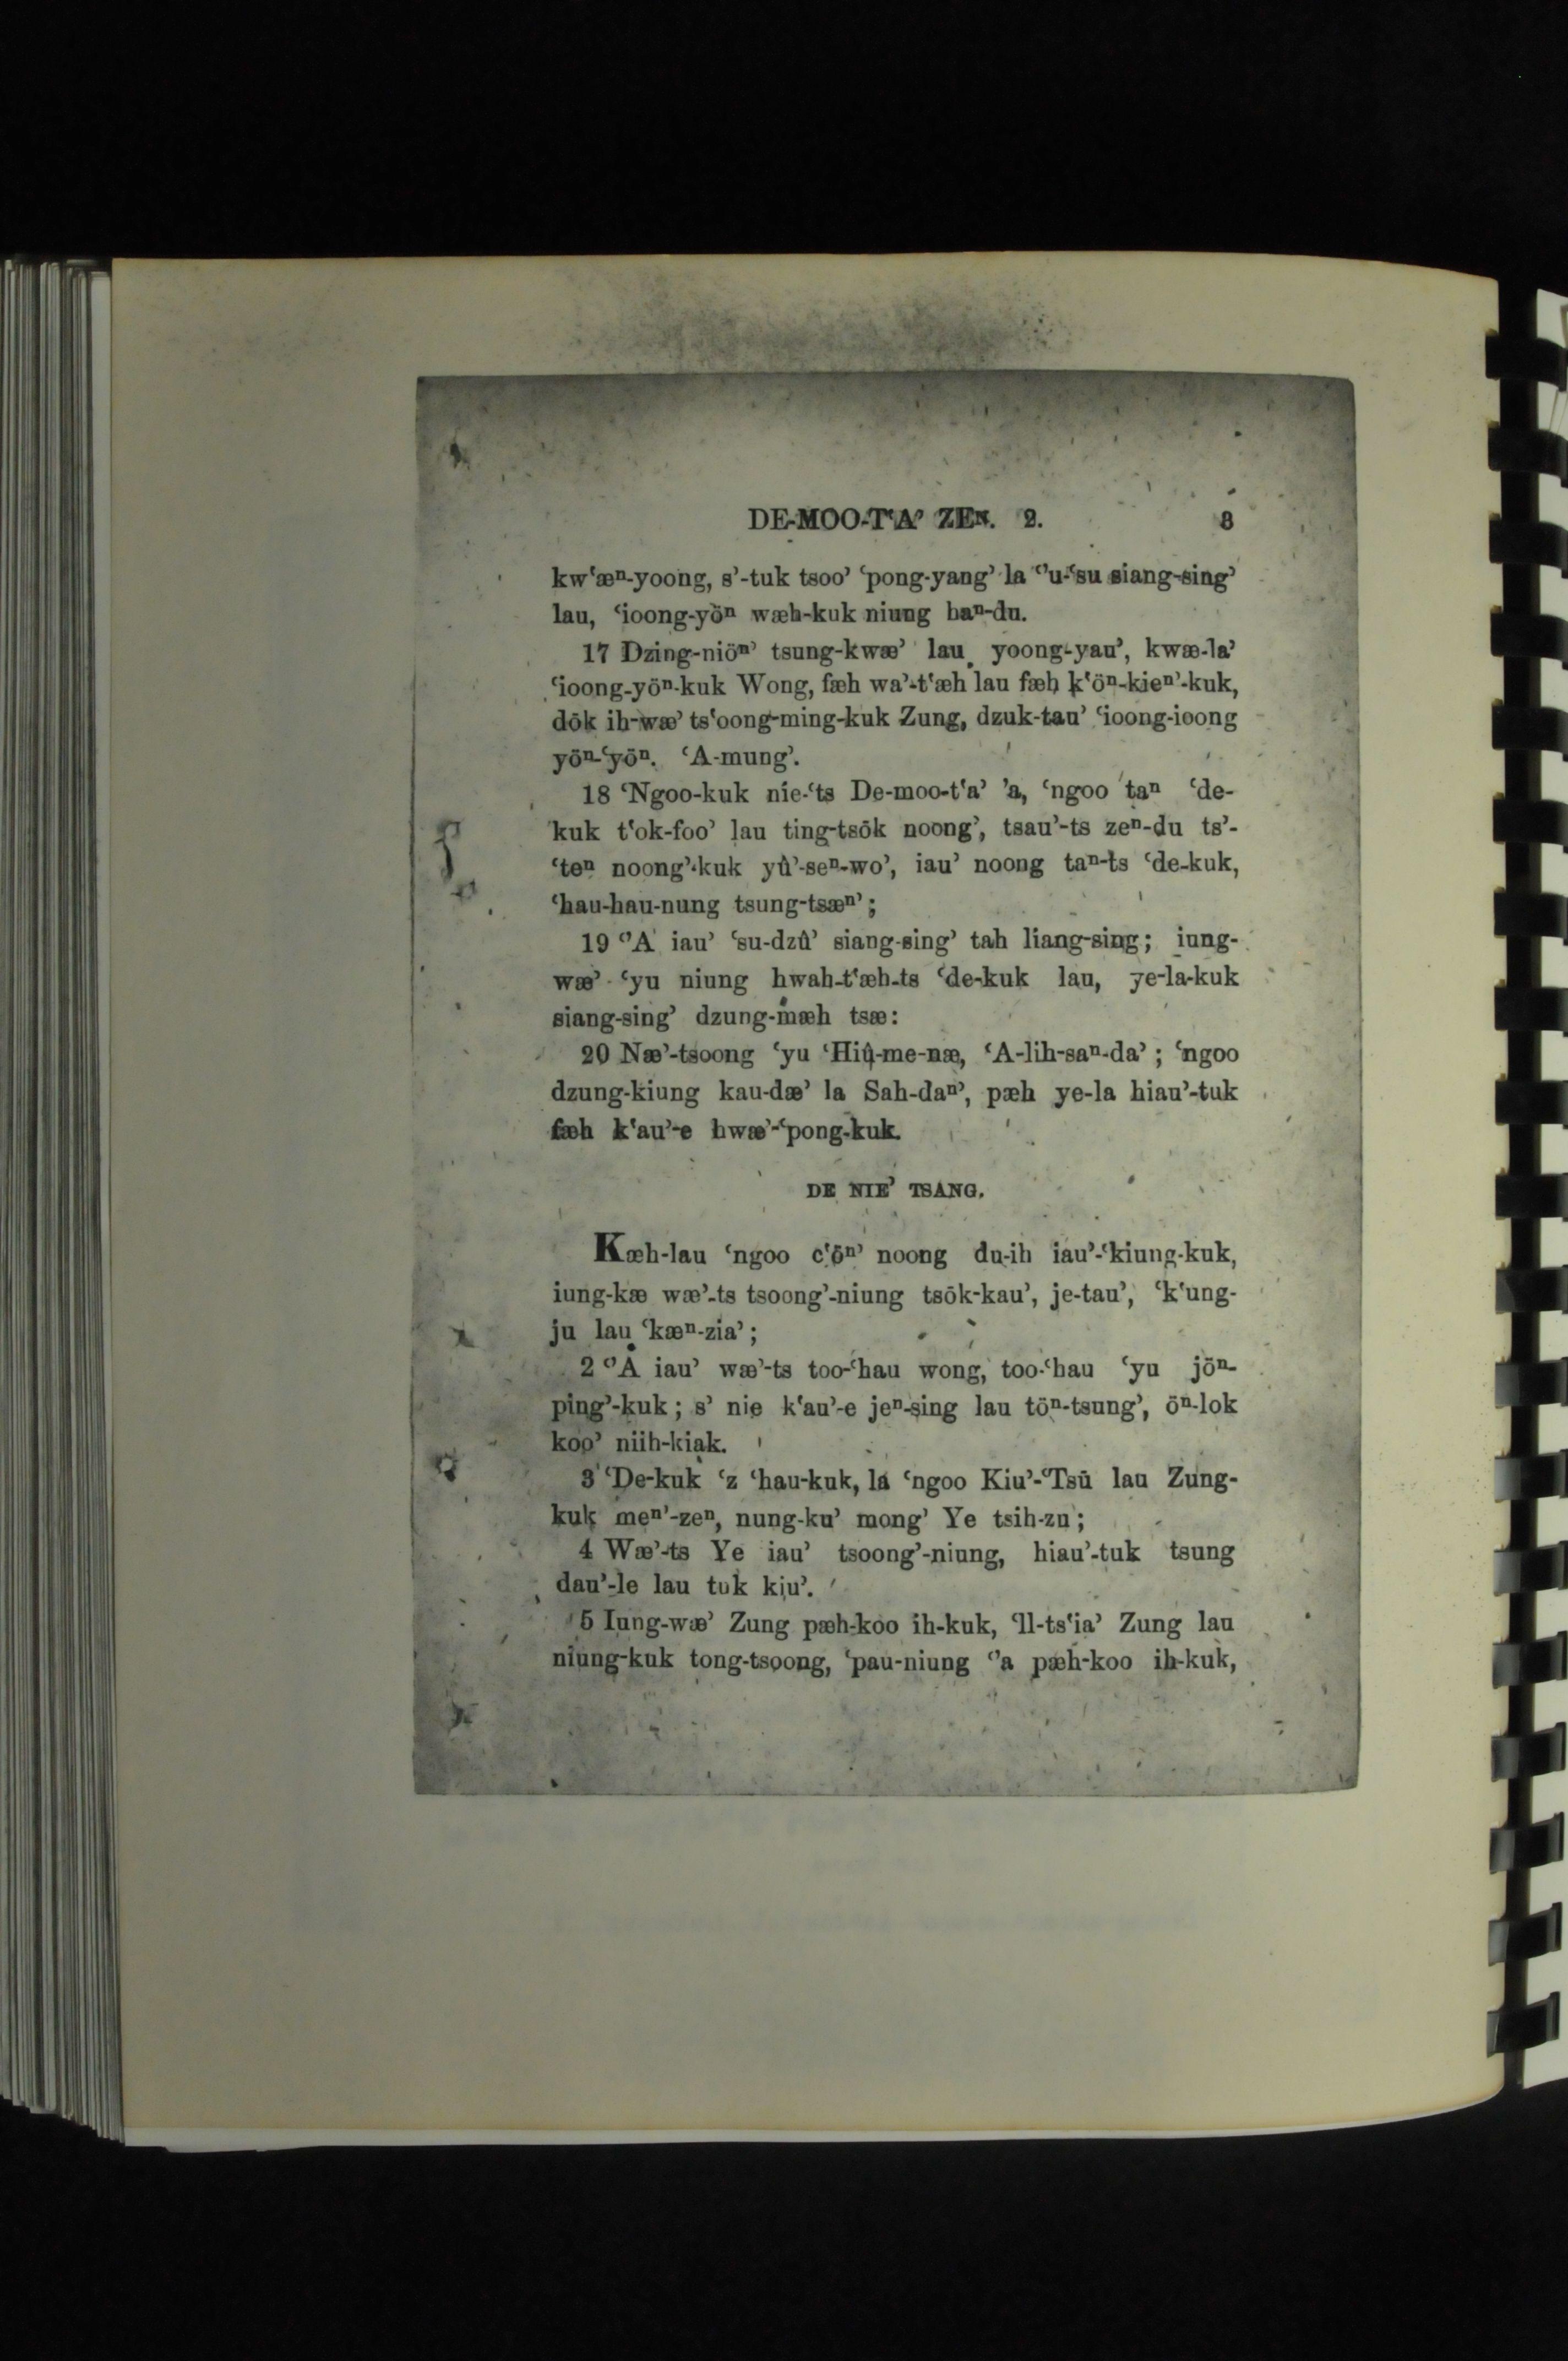 DE-MOO-T‘A’ ZEⁿ. 2. 3
kw‘æⁿ-yoong, s’-tuk tsoo’ ‘pong-yang’ la ‘’u-‘su siang-sing’
lau, ‘ioong-yöⁿ wæh-kuk niung haⁿ-du.
17 Dzing-niöⁿ’ tsung-kwæ’ lau yoong-yau’, kwæ-la’
‘ioong-yöⁿ-kuk Wong, fæh wa’-t‘æh lau fæh k‘öⁿ-kieⁿ’-kuk,
dök ih-wæ’ ts‘oong-ming-kuk Zung, dzuk-tau’ ‘ioong-ioong
yöⁿ-‘yöⁿ. ‘A-mung’.
18 ‘Ngoo-kuk nie-‘ts De-moo-t‘a’ ’a, ‘ngoo taⁿ ‘de-
kuk t‘ok-foo’ lau ting-tsök noong’, tsau’-ts zeⁿ-du ts’-
‘teⁿ noong’-kuk yû’-seⁿ-wo’, iau’ noong taⁿ-ts ‘de-kuk,
‘hau-hau-nung tsung-tsæⁿ’;
19 ‘’A iau’ ‘su-dzû’ siang-sing’ tah liang-sing; iung-
wæ’ ‘yu niung hwah-t‘æh-ts ‘de-kuk lau, ye-la-kuk
siang-sing’ dzung-mæh tsæ:
20 Næ’-tsoong ‘yu ‘Hiû-me-næ, ‘A-lih-saⁿ-da’; ‘ngoo
dzung-kiung kau-dæ’ la Sah-daⁿ’, pæh ye-la hiau’-tuk
fæh k‘au’-e hwæ’-‘pong-kuk.
DE NIE’ TSANG.
Kæh-lau ‘ngoo c‘öⁿ’ noong du-ih iau’-‘kiung-kuk,
iung-kæ wæ’-ts tsoong’-niung tsök-kau’, je-tau’, ‘k‘ung-
ju lau ‘kæⁿ-zia’;
2 ‘’A iau’ wæ’-ts too-‘hau wong, too-‘hau ‘yu jöⁿ-
ping’-kuk; s’ nie k‘au’-e jeⁿ-sing lau töⁿ-tsung’, öⁿ-lok
koo’ niih-kiak.
3 ‘De-kuk ‘z ‘hau-kuk, la ‘ngoo Kiu’-‘Tsü lau Zung-
kuk meⁿ’-zeⁿ, nung-ku’ mong’ Ye tsih-zu;
4 Wæ’-ts Ye iau’ tsoong’-niung, hiau’-tuk tsung
dau’-le lau tuk kiu’.
5 Iung-wæ’ Zung pæh-koo ih-kuk, ‘ll-ts‘ia’ Zung lau
niung-kuk tong-tsoong, ‘pau-niung ‘’a pæh-koo ih-kuk,